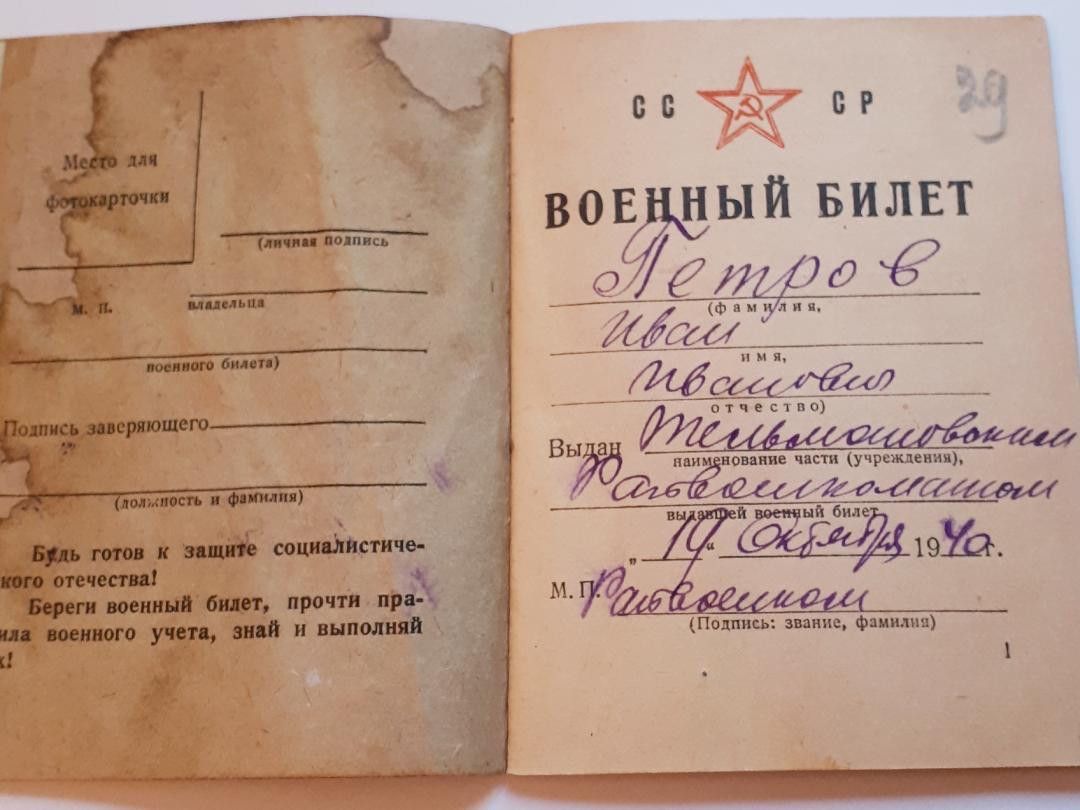 Место для
фотокарточки
(личная подпись
м. п.
владельца
военного билета)
Подпись заверяющего
(должность и фамилия)
Будь готов к защите социалистиче-
кого отечества!
Береги военный билет, прочти пра-
ила военного учета, знай и выполняй
х!
СС СР
39
ВОЕННЫЙ БИЛЕТ
Петров
(фамилия,
Иван
имя,
Иванович
отчество)
Выдан Тельмановским
наименование части (учреждения),
Райвоенкоматом
выдавшей военный билет
„ 14 “ Октября 1940 г.
М. П. Райвоенком
(Подпись: звание, фамилия)
1